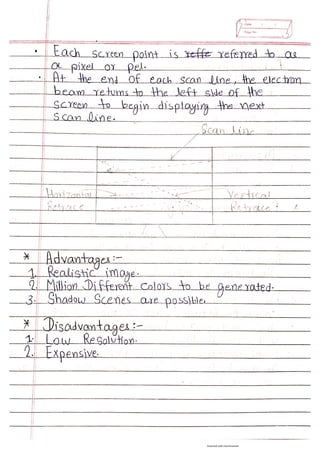 • Each screen point is reffe referred to as
a pixel or pel.
• At the end of each scan line, the electron
beam returns to the left side of the
screen to begin displaying the next
scan line.
Scan line
Horizontal
Retrace
Vertical
Retrace
* Advantages:-
1. Realistic image.
2. Million Different colors to be generated.
3. Shadow Scenes are possible.
* Disadvantages:-
1. Low Resolution.
2. Expensive.